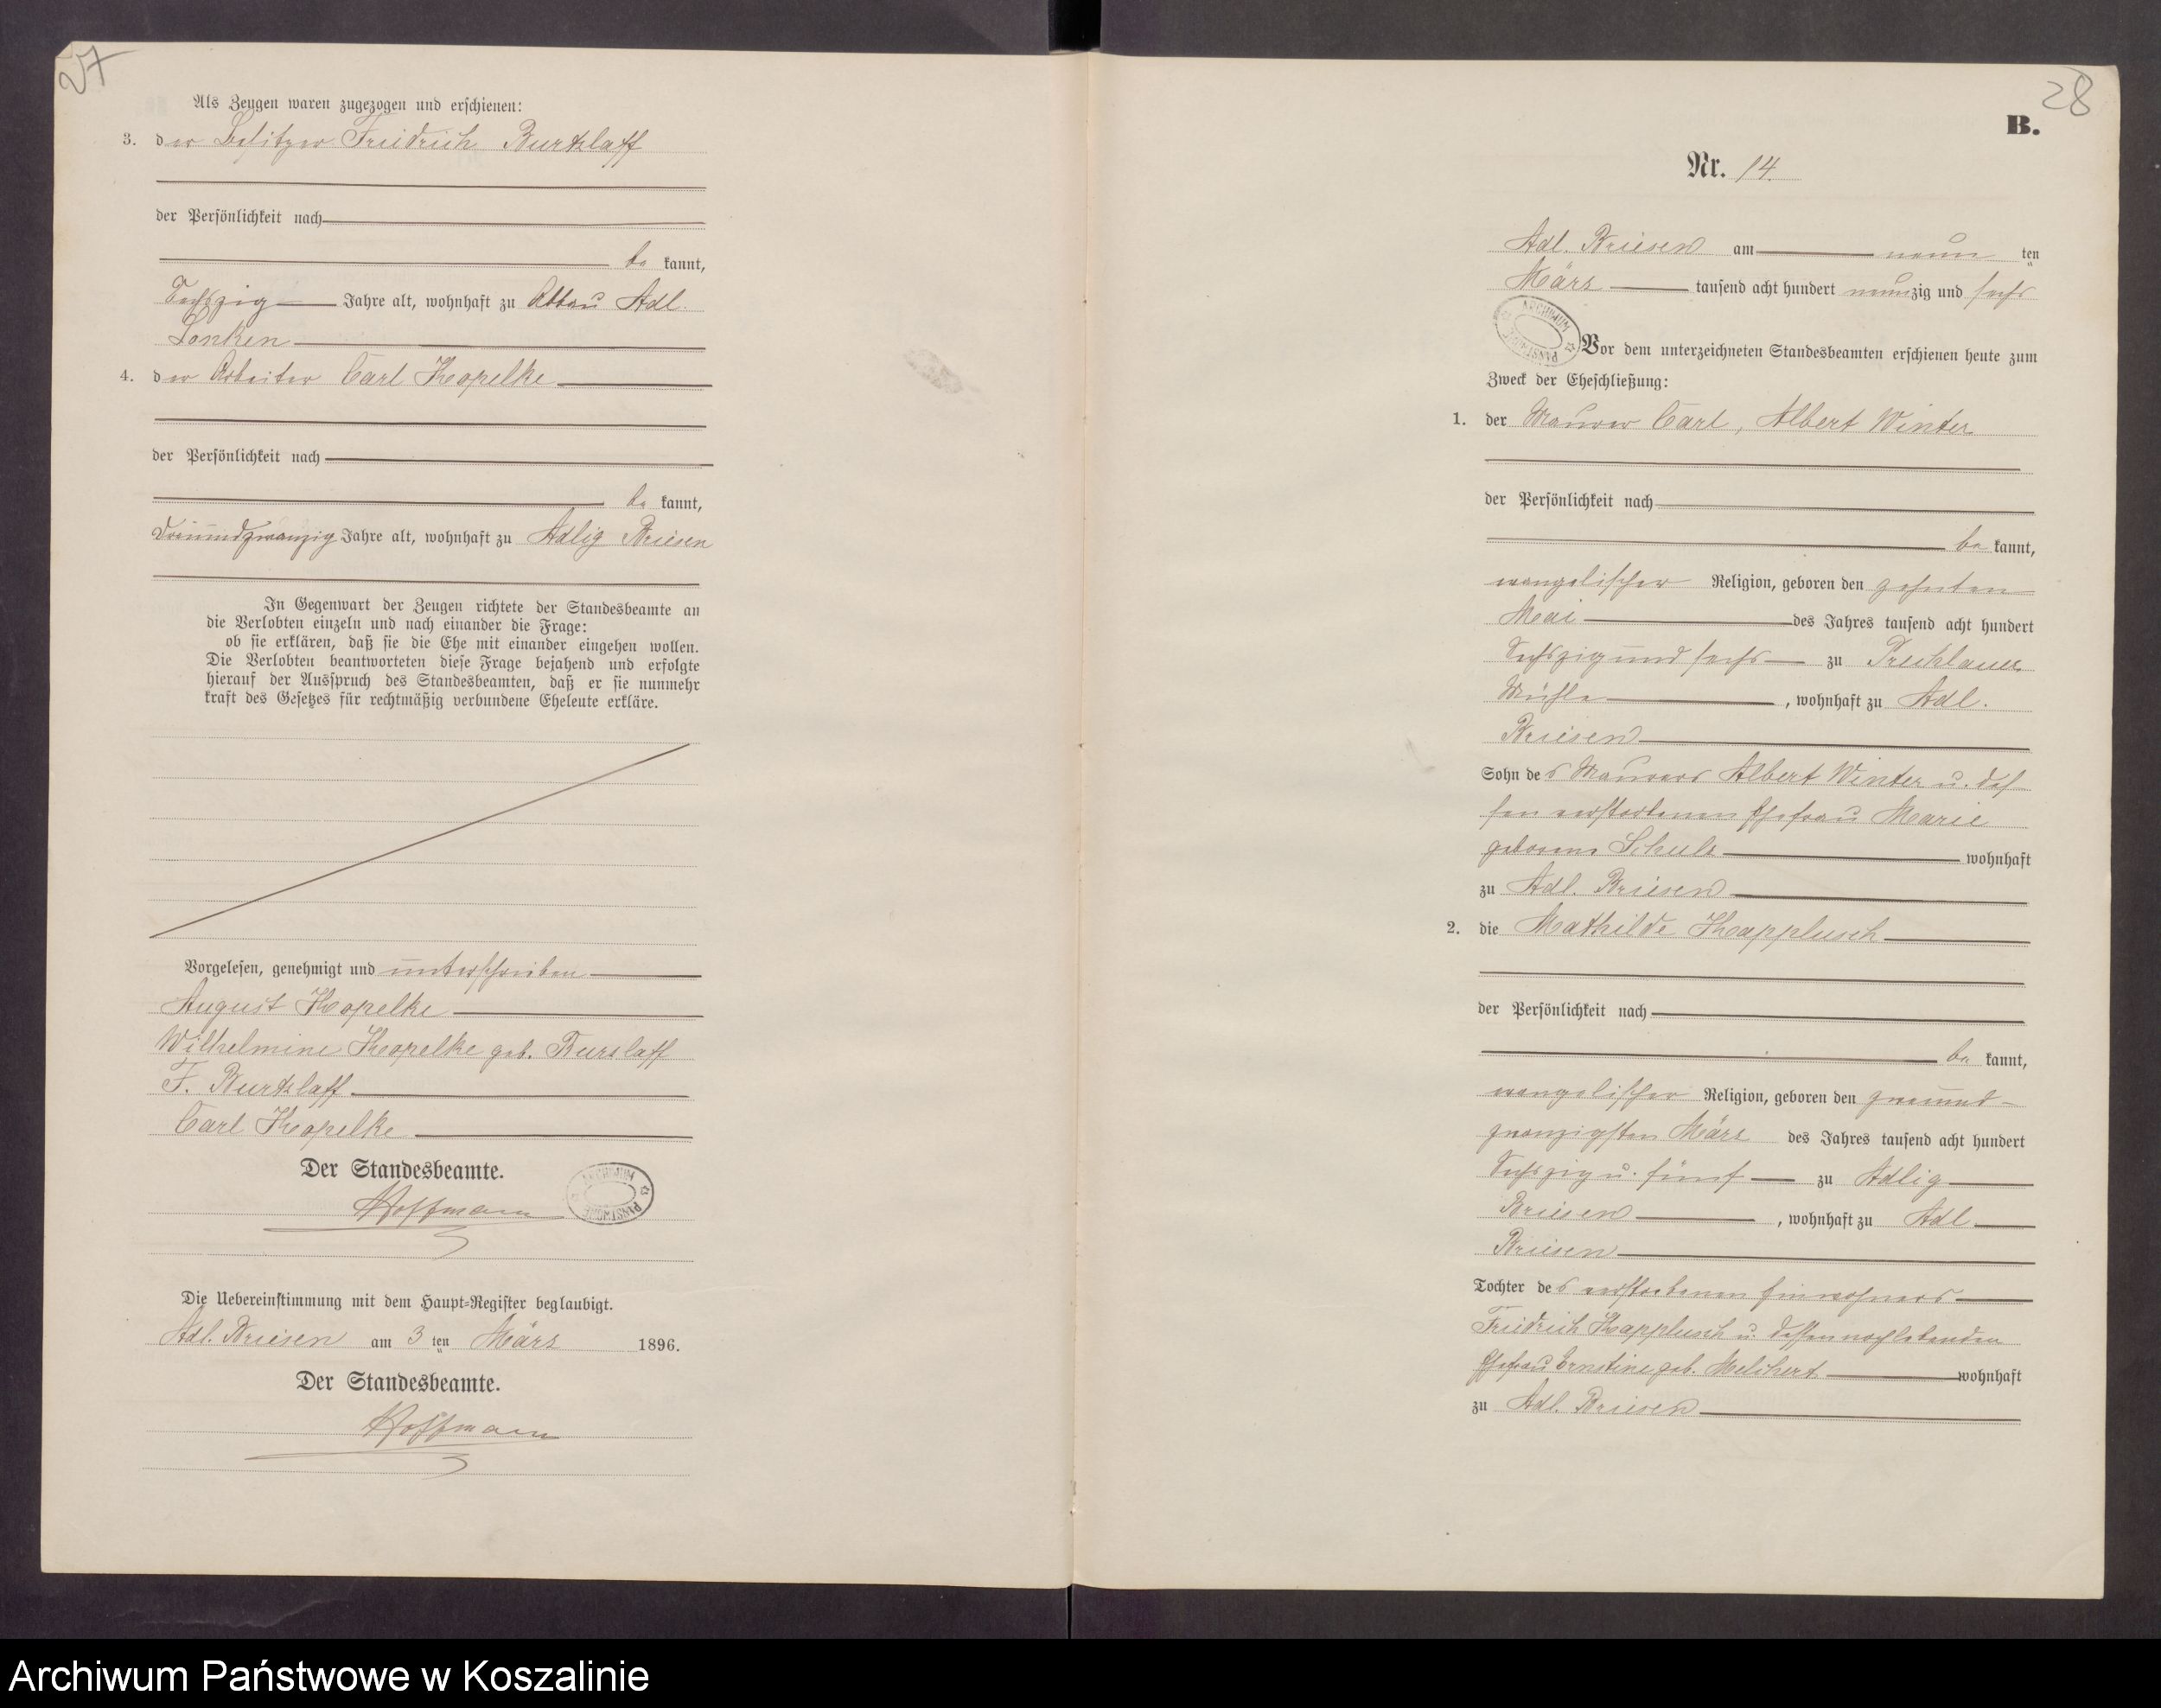 27
Als Zeugen waren zugezogen und erschienen:
3. der Besitzer Friedrich Burtzlaff
der Persönlichkeit nach
be kannt,
Sechszig Jahre alt, wohnhaft zu Abbau Adl.
Lonken
4. der Arbeiter Carl Kopelke
der Persönlichkeit nach
be kannt,
dreiundzwanzig Jahre alt, wohnhaft zu Adlig Briesen
In Gegenwart der Zeugen richtete der Standesbeamte an
die Verlobten einzeln und nach einander die Frage:
ob sie erklären, daß sie die Ehe mit einander eingehen wollen.
Die Verlobten beantworteten diese Frage bejahend und erfolgte
hierauf der Ausspruch des Standesbeamten, daß er sie nunmehr
kraft des Gesetzes für rechtmäßig verbundene Eheleute erkläre.
Vorgelesen, genehmigt und unterschrieben
August Kopelke
Wilhelmine Kopelke geb. Burzlaff
F. Burtzlaff
Carl Kopelke
Der Standesbeamte.
Hoffmann
ARCHIWUM PAŃSTWOWE
Die Uebereinstimmung mit dem Haupt-Register beglaubigt.
Adl. Briesen am 3 ten März 1896.
Der Standesbeamte.
Hoffmann
28
B.
Nr. 14.
Adl. Briesen am neun ten
März tausend acht hundert neunzig und sechs
ARCHIWUM PAŃSTWOWE
Vor dem unterzeichneten Standesbeamten erschienen heute zum
Zweck der Eheschließung:
1. der Maurer Carl, Albert Winter
der Persönlichkeit nach
be kannt,
evangelischer Religion, geboren den zehnten
Mai des Jahres tausend acht hundert
Sechszig und sechs zu Prechlauer
Mühle, wohnhaft zu Adl.
Briesen
Sohn des Maurers Albert Winter u. des
sen verstorbenen Ehefrau Marie
geborene Schulz wohnhaft
zu Adl. Briesen
2. die Mathilde Kapplusch
der Persönlichkeit nach
be kannt,
evangelischer Religion, geboren den zweiund-
zwanzigsten März des Jahres tausend acht hundert
Sechszig u. fünf zu Adlig
Briesen, wohnhaft zu Adl
Briesen
Tochter des verstorbenen Einwohners
Friedrich Kapplusch u. dessen nachlebenden
Ehefrau Ernstine geb. Melchert wohnhaft
zu Adl. Briesen
Archiwum Państwowe w Koszalinie